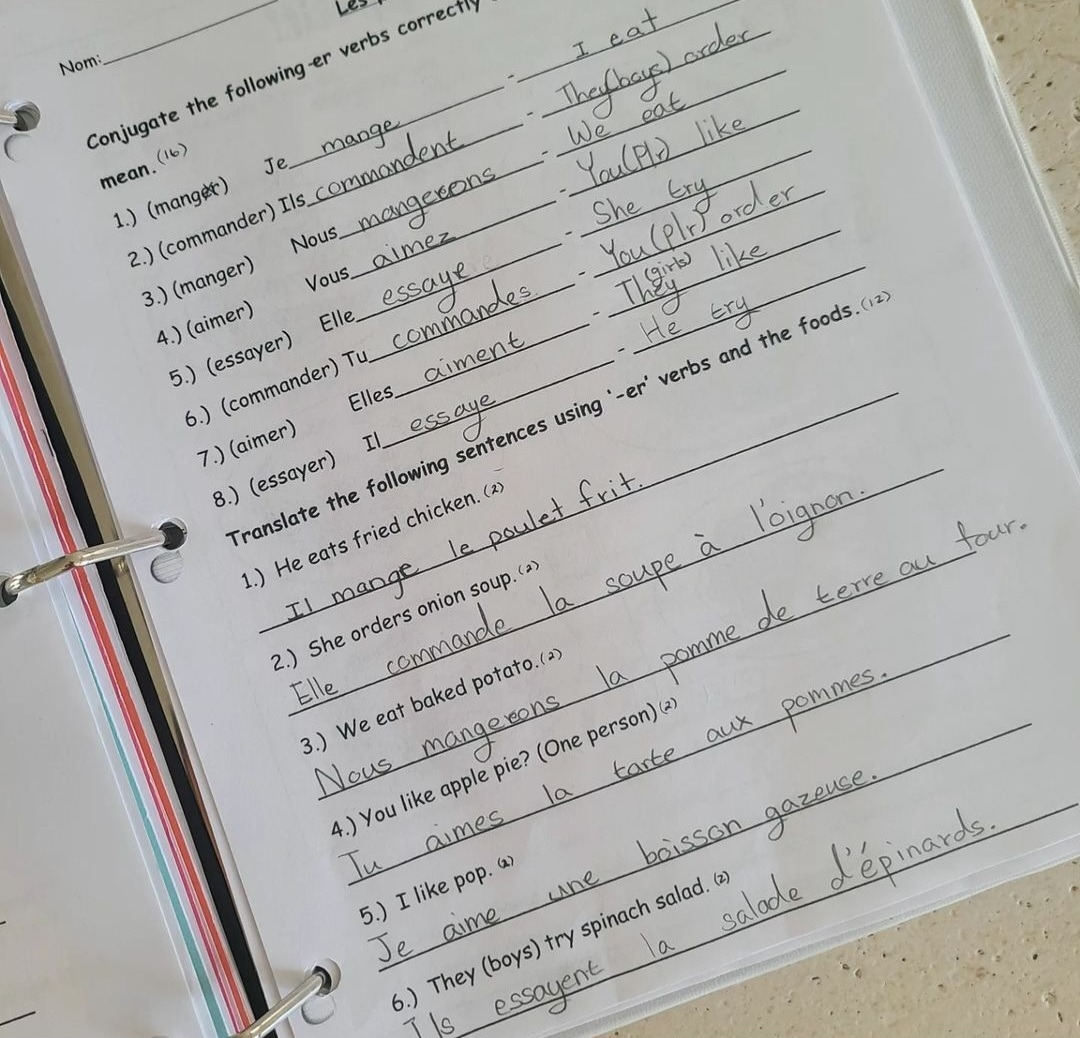 Les
Nom:
Conjugate the following -er verbs correctly
mean. (16)
1.) (manger) Je mange - I eat
2.) (commander) Ils commandent - They(boys) order
3.) (manger) Nous mangerons - We eat
4.) (aimer) Vous aimez - You(Plr) like
5.) (essayer) Elle essaye - She try
6.) (commander) Tu commandes - You(Plr) order
7.) (aimer) Elles aiment - They (girls) like
8.) (essayer) Il essaye - He try
Translate the following sentences using '-er' verbs and the foods. (12)
1.) He eats fried chicken. (2)
Il mange le poulet frit.
2.) She orders onion soup. (2)
Elle commande la soupe à l'oignon.
3.) We eat baked potato. (2)
Nous mangerons la pomme de terre au four.
4.) You like apple pie? (One person) (2)
Tu aimes la tarte aux pommes.
5.) I like pop. (2)
Je aime une boisson gazeuse.
6.) They (boys) try spinach salad. (2)
Ils essayent la salade d'épinards.